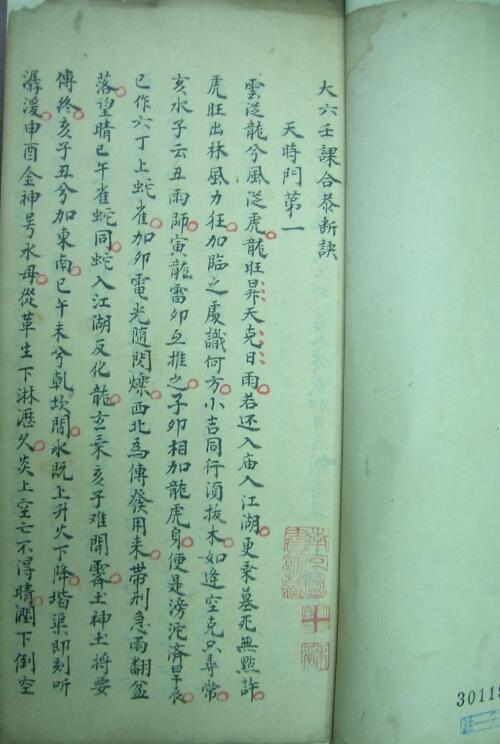 大六壬課合叅断訣
天時門第一
雲从龍兮風从虎龍旺昇天克日雨若还入庙入江湖更乘墓死無點許
虎旺出林風力狂加临之處識何方小吉同行須拔木如逢空克只尋常
亥水子云丑雨師寅龍雷卯互推之子卯相加龍虎身便是滂沱済旱
巳作六丁上蛇雀加卯電光随閃爍西北為傳發用来带刑急雨翻盆
落望晴巳午雀蛇同蛇入江湖反化龍玄乘亥子难開霽土神土將要
傳終亥子丑兮加東南巳午未兮乾坎間水既上升火下降堦渠即刻听
潺湲申酉金神号水母從革生下淋漓久炎上空亡不得晴潤下倒空
3011